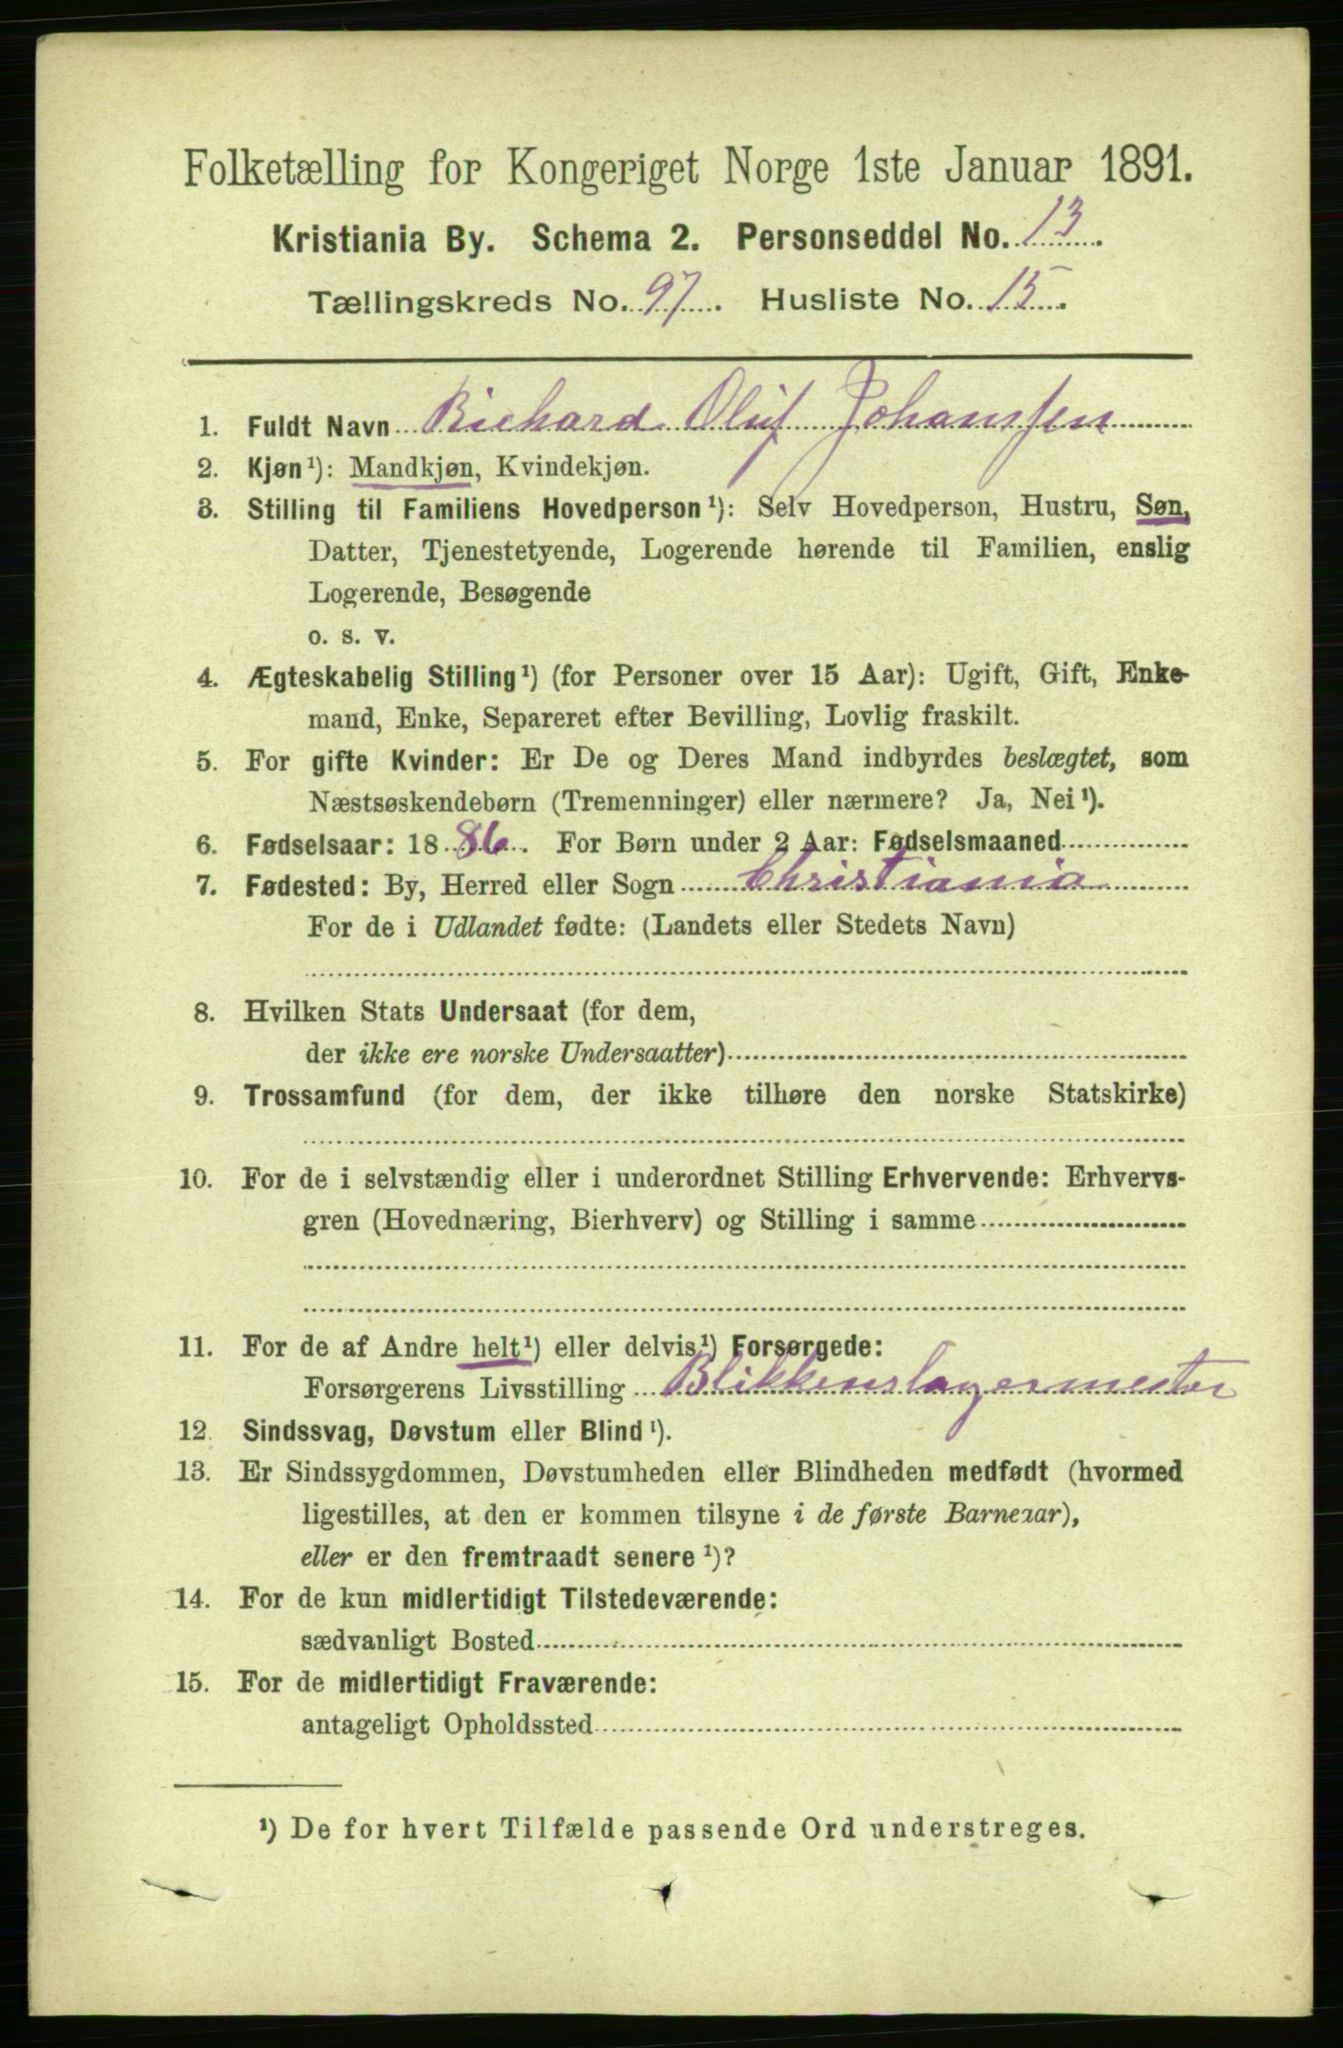 Folketælling for Kongeriget Norge 1ste Januar 1891.
Kristiania By. Schema 2. Personseddel No. 13.
Tællingskreds No. 97. Husliste No. 15.
1. Fuldt Navn Richard Oluf Johanssen
2. Kjøn¹): Mandkjøn, Kvindekjøn.
3. Stilling til Familiens Hovedperson¹): Selv Hovedperson, Hustru, Søn,
Datter, Tjenestetyende, Logerende hørende til Familien, enslig
Logerende, Besøgende
o. s. v.
4. Ægteskabelig Stilling¹) (for Personer over 15 Aar): Ugift, Gift, Enke-
mand, Enke, Separeret efter Bevilling, Lovlig fraskilt.
5. For gifte Kvinder: Er De og Deres Mand indbyrdes beslægtet, som
Næstsøskendebørn (Tremenninger) eller nærmere? Ja, Nei¹).
6. Fødselsaar: 1886. For Børn under 2 Aar: Fødselsmaaned
7. Fødested: By, Herred eller Sogn Christiania
For de i Udlandet fødte: (Landets eller Stedets Navn)
8. Hvilken Stats Undersaat (for dem,
der ikke ere norske Undersaatter)
9. Trossamfund (for dem, der ikke tilhøre den norske Statskirke)
10. For de i selvstændig eller i underordnet Stilling Erhvervende: Erhvervs-
gren (Hovednæring, Bierhverv) og Stilling i samme
11. For de af Andre helt¹) eller delvis¹) Forsørgede:
Forsørgerens Livsstilling Blikkenslagermester
12. Sindssvag, Døvstum eller Blind¹).
13. Er Sindssygdommen, Døvstumheden eller Blindheden medfødt (hvormed
ligestilles, at den er kommen tilsyne i de første Barneaar),
eller er den fremtraadt senere¹)?
14. For de kun midlertidigt Tilstedeværende:
sædvanligt Bosted
15. For de midlertidigt Fraværende:
antageligt Opholdssted
¹) De for hvert Tilfælde passende Ord understreges.